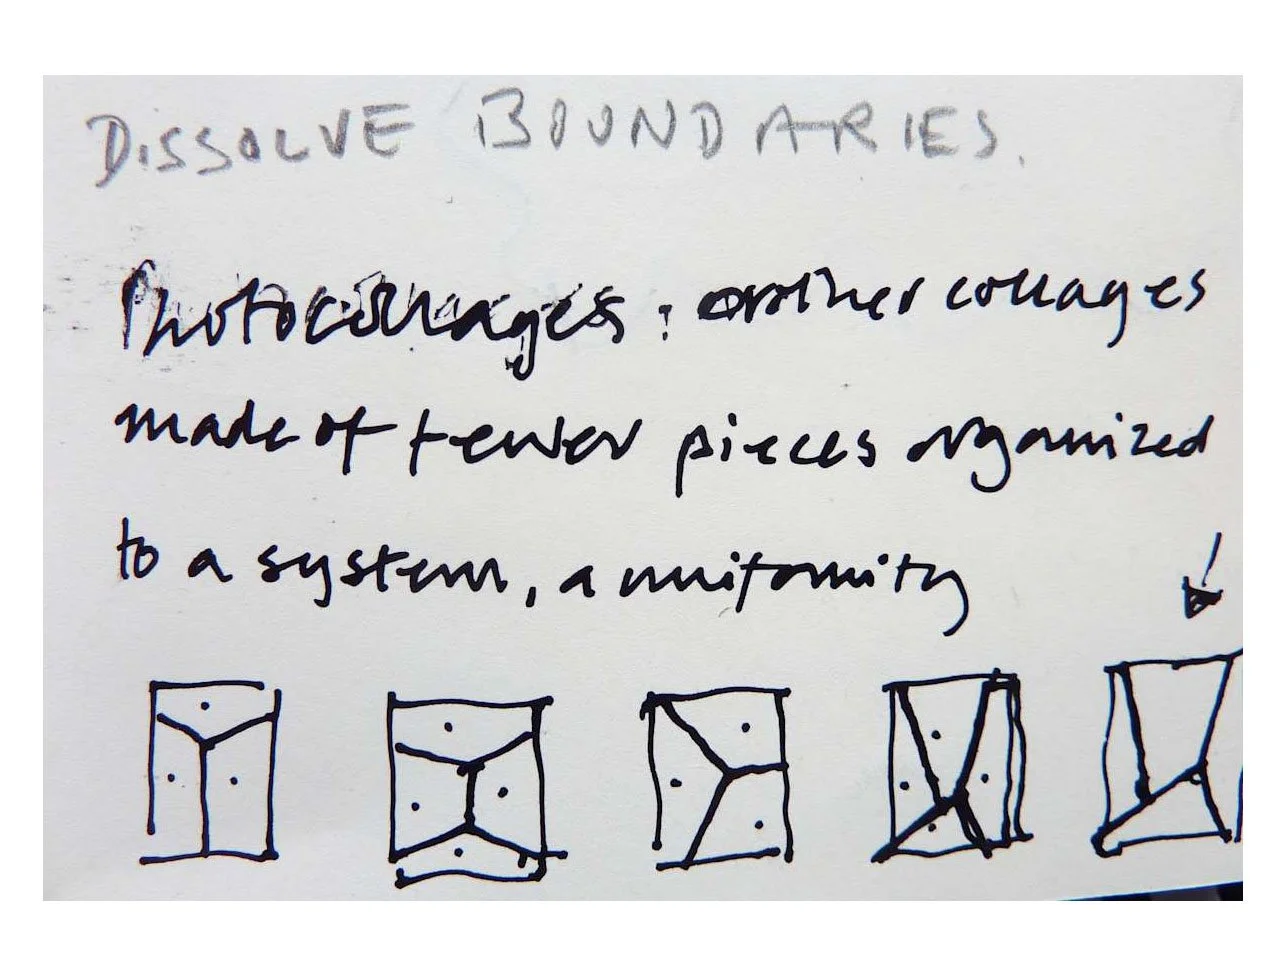 DISSOLVE BOUNDARIES.
Photocollages: or other collages
made of fewer pieces organized
to a system, a uniformity